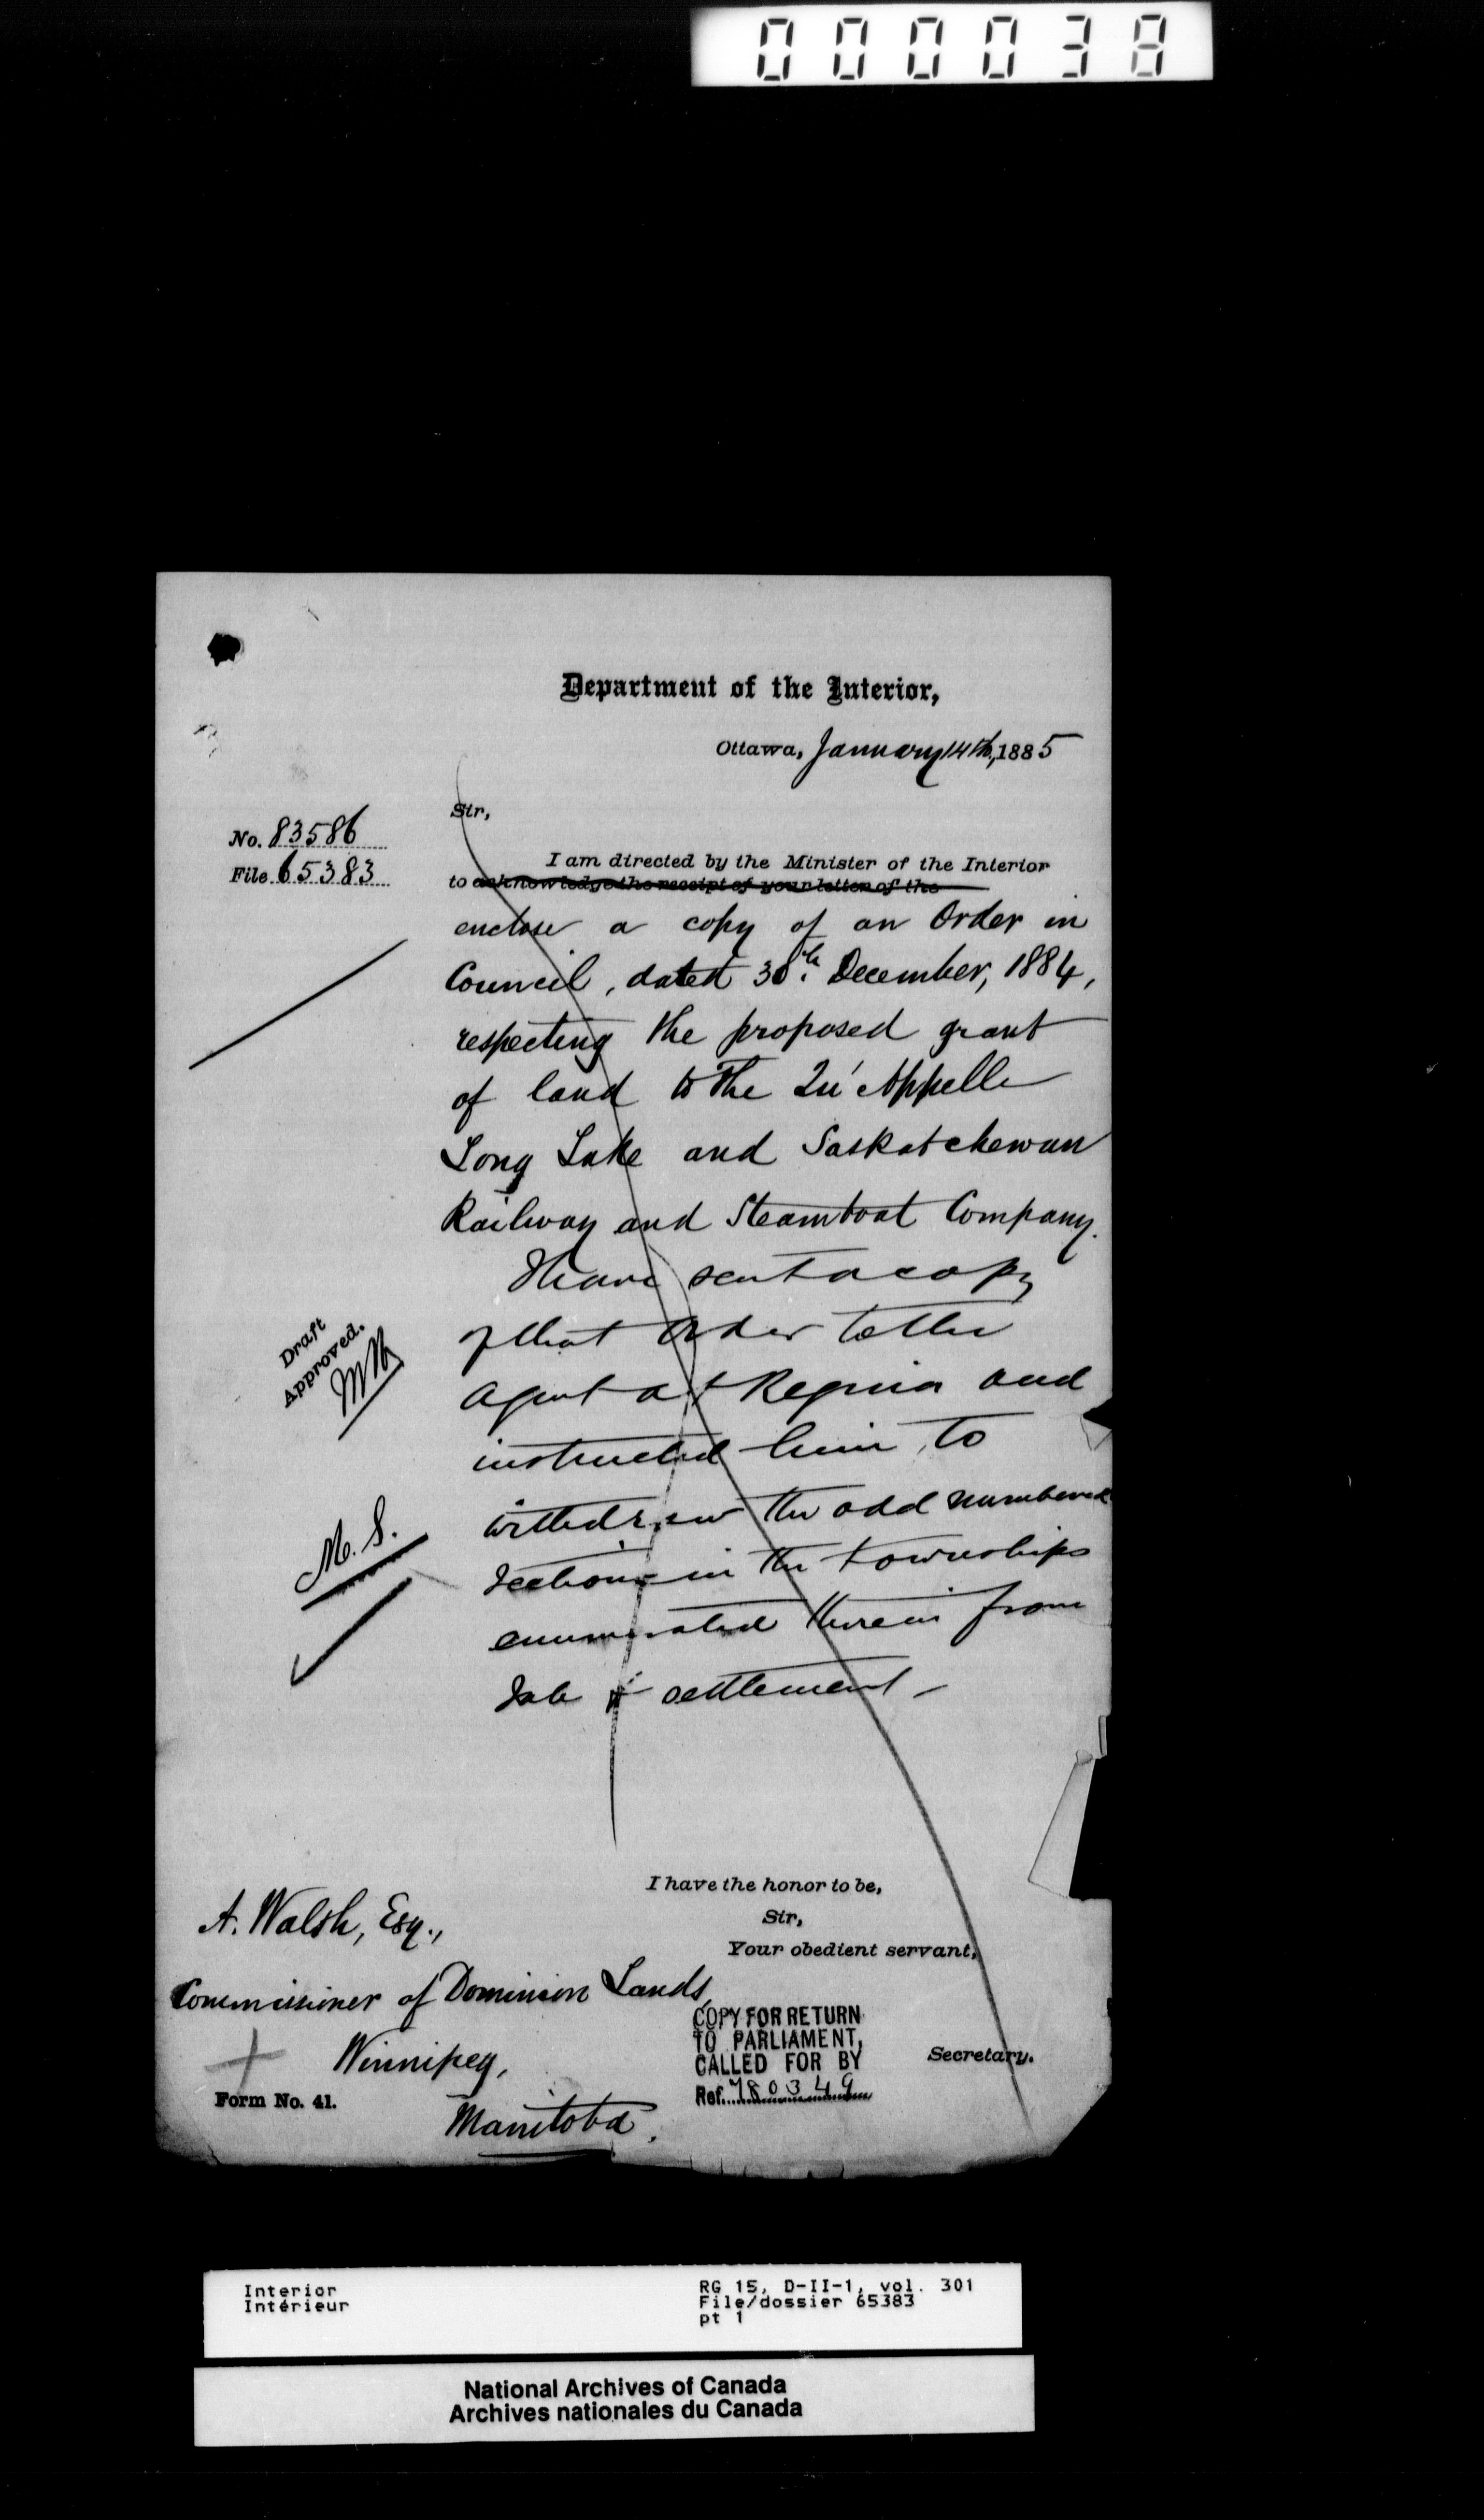 000038
Department of the Interior,
Ottawa, January 14th, 1885
Sir,
No. 83586
File 65383
I am directed by the Minister of the Interior
to acknowledge the receipt of your letter of the
enclose a copy of an Order in
Council, dated 30th December, 1884,
respecting the proposed grant
of land to the Qu'Appelle
Long Lake and Saskatchewan
Railway and Steamboat Company.
I have sent a copy
of that Order to the
Agent at Regina and
instructed him to
withdraw the odd numbered
Sections in the townships
enumerated therein from
Sale & settlement —
Draft
Approved.
M. S.
I have the honor to be,
Sir,
Your obedient servant,
A. Walsh, Esq.,
Commissioner of Dominion Lands,
Winnipeg,
Manitoba.
COPY FOR RETURN
TO PARLIAMENT,
CALLED FOR BY
Ref. 780349
Secretary.
Form No. 41.
Interior
Intérieur
RG 15, D-II-1, vol. 301
File/dossier 65383
pt 1
National Archives of Canada
Archives nationales du Canada